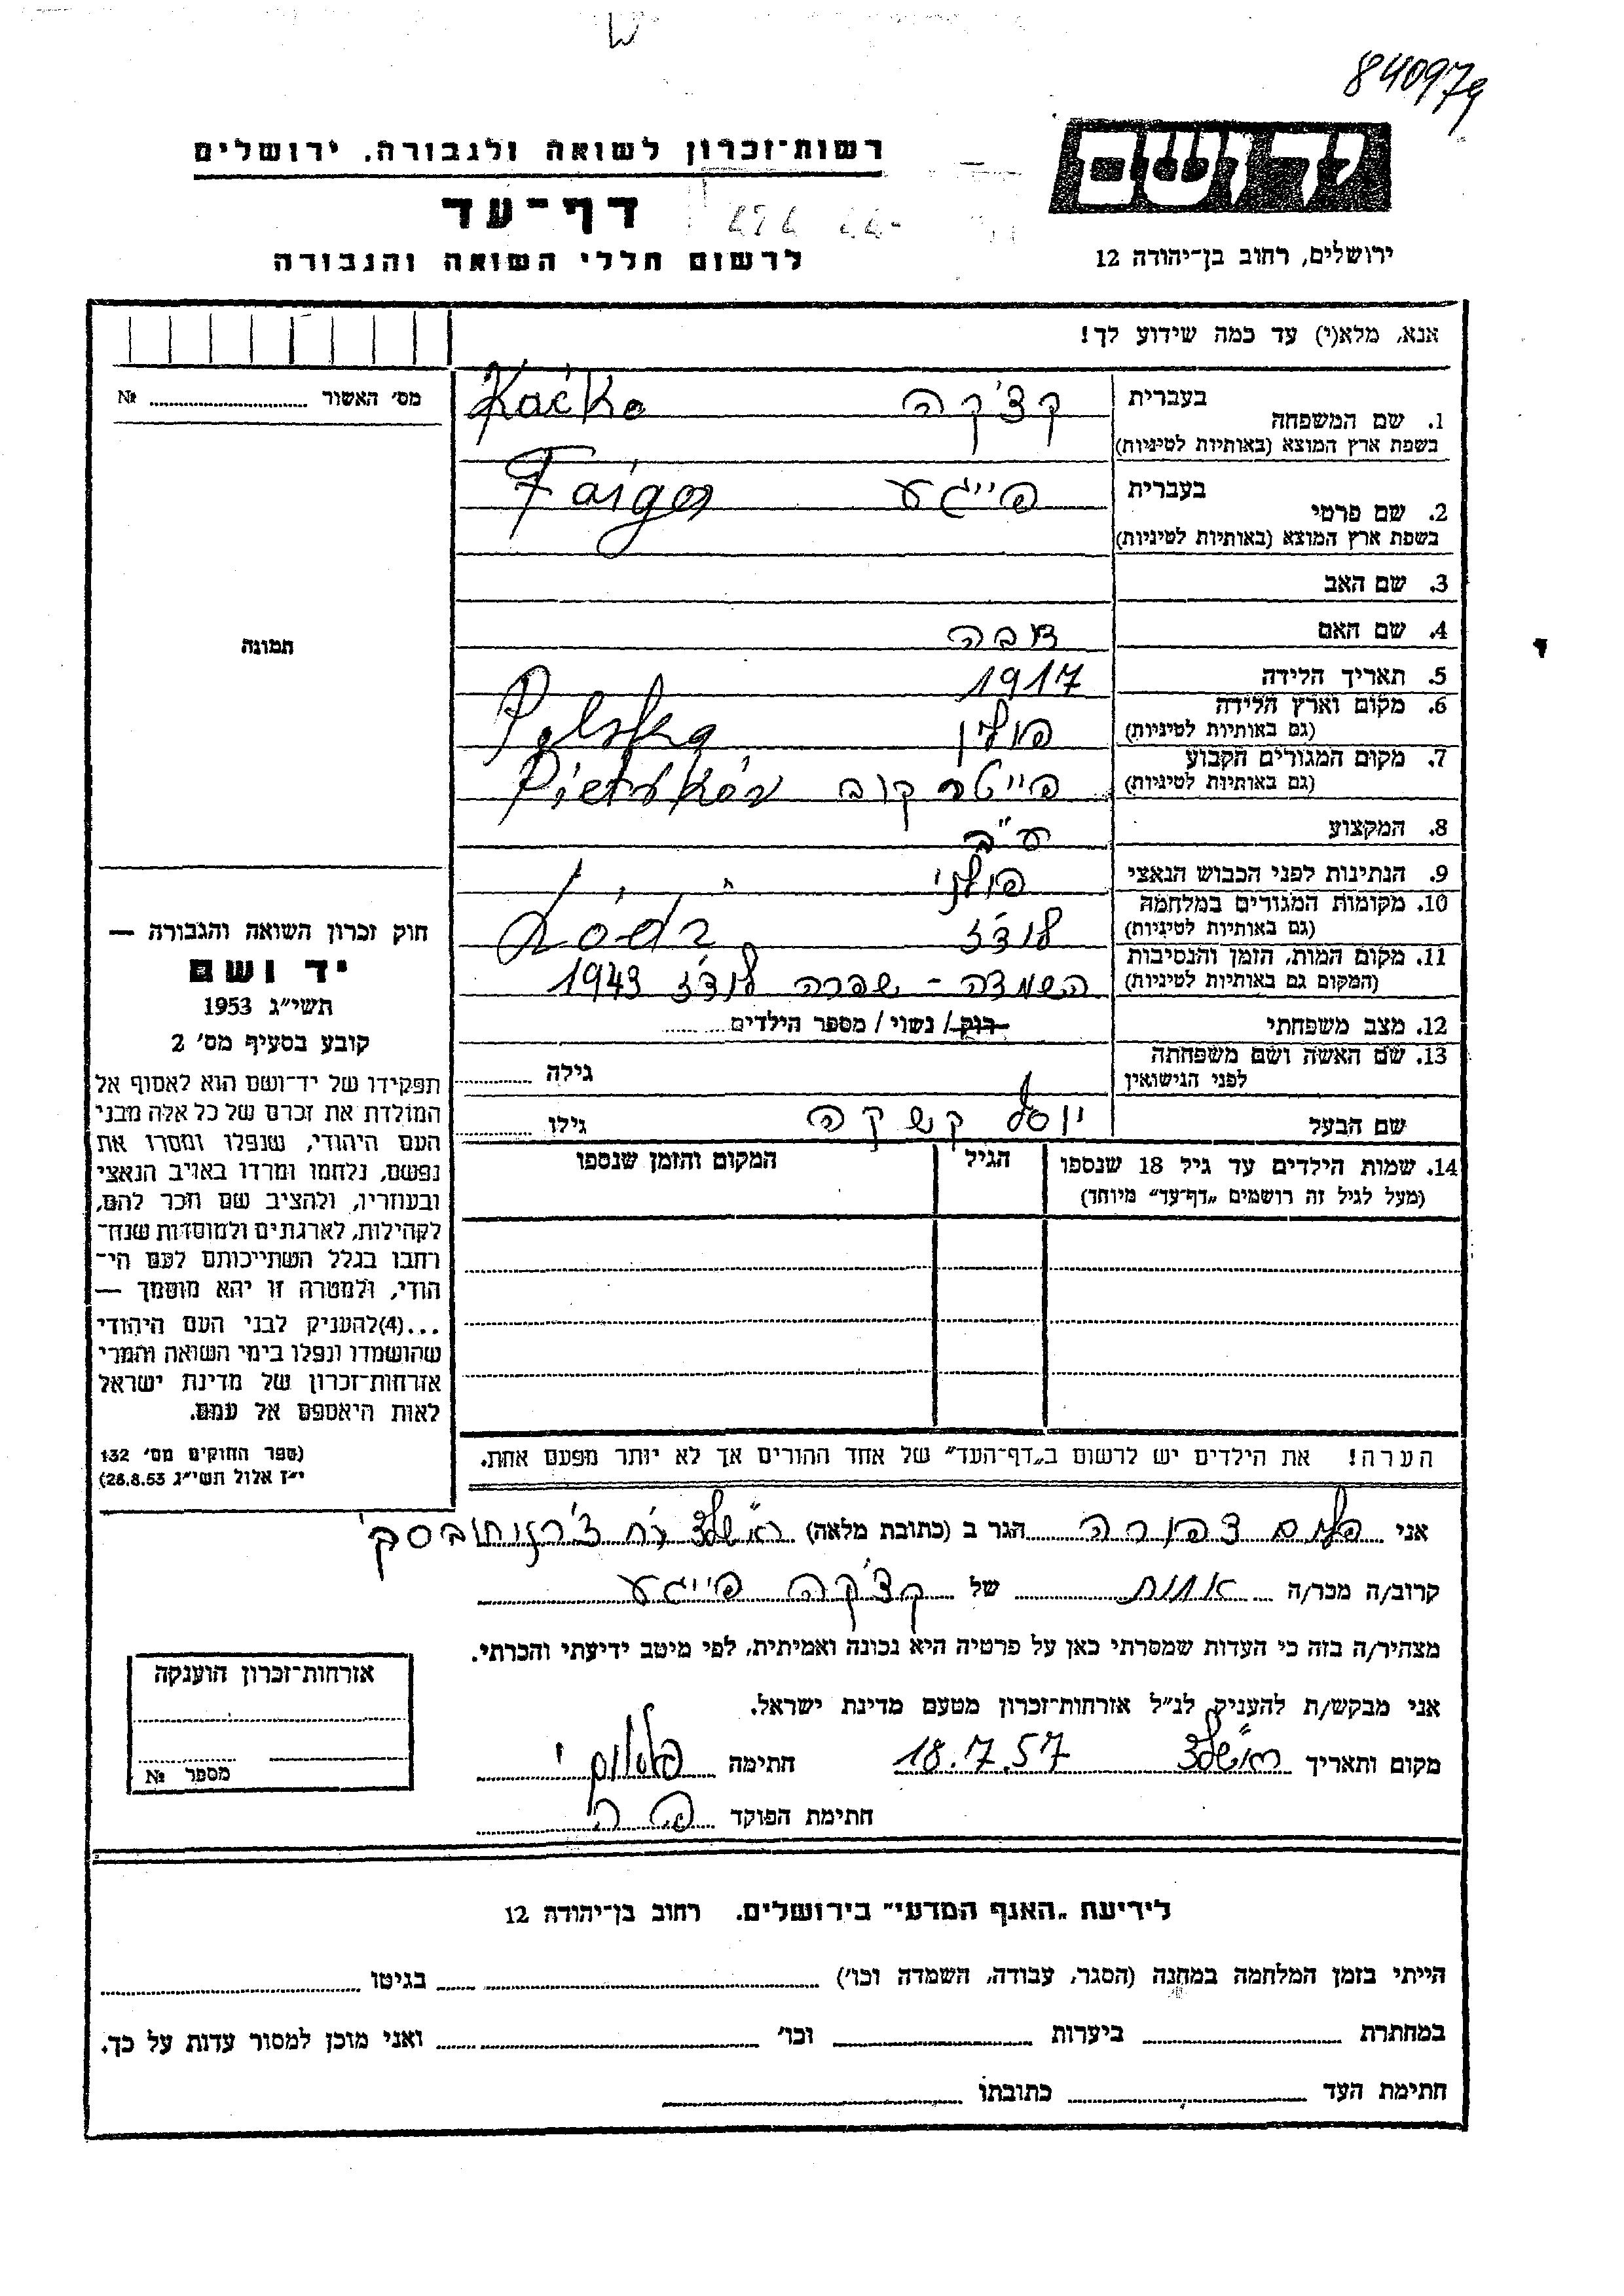 840979
רשות-זכרון לשואה ולגבורה, ירושלים
יד ושם
דף-עד
לרשום חללי השואה והגבורה
ירושלים, רחוב בן-יהודה 12
אנא, מלא(י) עד כמה שידוע לך!
מס׳ האשור № 
בעברית קצ׳קה Kaćka
1. שם המשפחה
בשפת ארץ המוצא (באותיות לטיניות)
בעברית פייגע Fajga
2. שם פרטי
בשפת ארץ המוצא (באותיות לטיניות)
3. שם האב
4. שם האם דבה
תמונה
5. תאריך הלידה 1917
6. מקום וארץ הלידה פולין Polska
(גם באותיות לטיניות)
7. מקום המגורים הקבוע פייטרקוב Pietrków
(גם באותיות לטיניות)
8. המקצוע עב"ב
9. הנתינות לפני הכבוש הנאצי פולני
10. מקומות המגורים במלחמה לודז׳ Łódź
(גם באותיות לטיניות)
11. מקום המות, הזמן והנסיבות השמדה - שפרה לודז׳ 1943
(המקום גם באותיות לטיניות)
12. מצב משפחתי רוק / נשוי / מספר הילדים
13. שם האשה ושם משפחתה גילה
לפני הנישואין
שם הבעל יוסל קשקה גילו
14. שמות הילדים עד גיל 18 שנספו הגיל המקום והזמן שנספו
(מעל לגיל זה רושמים „דף-עד״ מיוחד)
חוק זכרון השואה והגבורה —
יד ושם
תשי״ג 1953
קובע בסעיף מס׳ 2
תפקידו של יד-ושם הוא לאסוף אל
המולדת את זכרם של כל אלה מבני
העם היהודי, שנפלו ומסרו את
נפשם, נלחמו ומרדו באויב הנאצי
ובעוזריו, ולהציב שם וזכר להם,
לקהילות, לארגונים ולמוסדות שנח-
רבו בגלל השתייכותם לעם הי-
הודי, ולמטרה זו יהא מוסמך —
...(4)להעניק לבני העם היהודי
שהושמדו ונפלו בימי השואה והמרי
אזרחות-זכרון של מדינת ישראל
לאות היאספם אל עמם.
(ספר החוקים מס׳ 132
י״ז אלול תשי״ג 28.8.53)
הערה! את הילדים יש לרשום ב„דף-העד״ של אחד ההורים אך לא יותר מפעם אחת.
אני צפורה הגר ב (כתובת מלאה) ראשל"צ רח׳
קרוב/ה מכר/ה אחות של קצ׳קה פייגע
מצהיר/ה בזה כי העדות שמסרתי כאן על פרטיה היא נכונה ואמיתית, לפי מיטב ידיעתי והכרתי.
אני מבקש/ת להעניק לנ״ל אזרחות-זכרון מטעם מדינת ישראל.
מקום ותאריך ראשל"צ 18.7.57 חתימה
חתימת הפוקד
אזרחות-זכרון הוענקה
מספר №
לידיעת „האגף המדעי״ בירושלים. רחוב בן-יהודה 12
הייתי בזמן המלחמה במחנה (הסגר, עבודה, השמדה וכו׳) בגיטו
במחתרת ביערות וכו׳ ואני מוכן למסור עדות על כך.
חתימת העד כתובתו